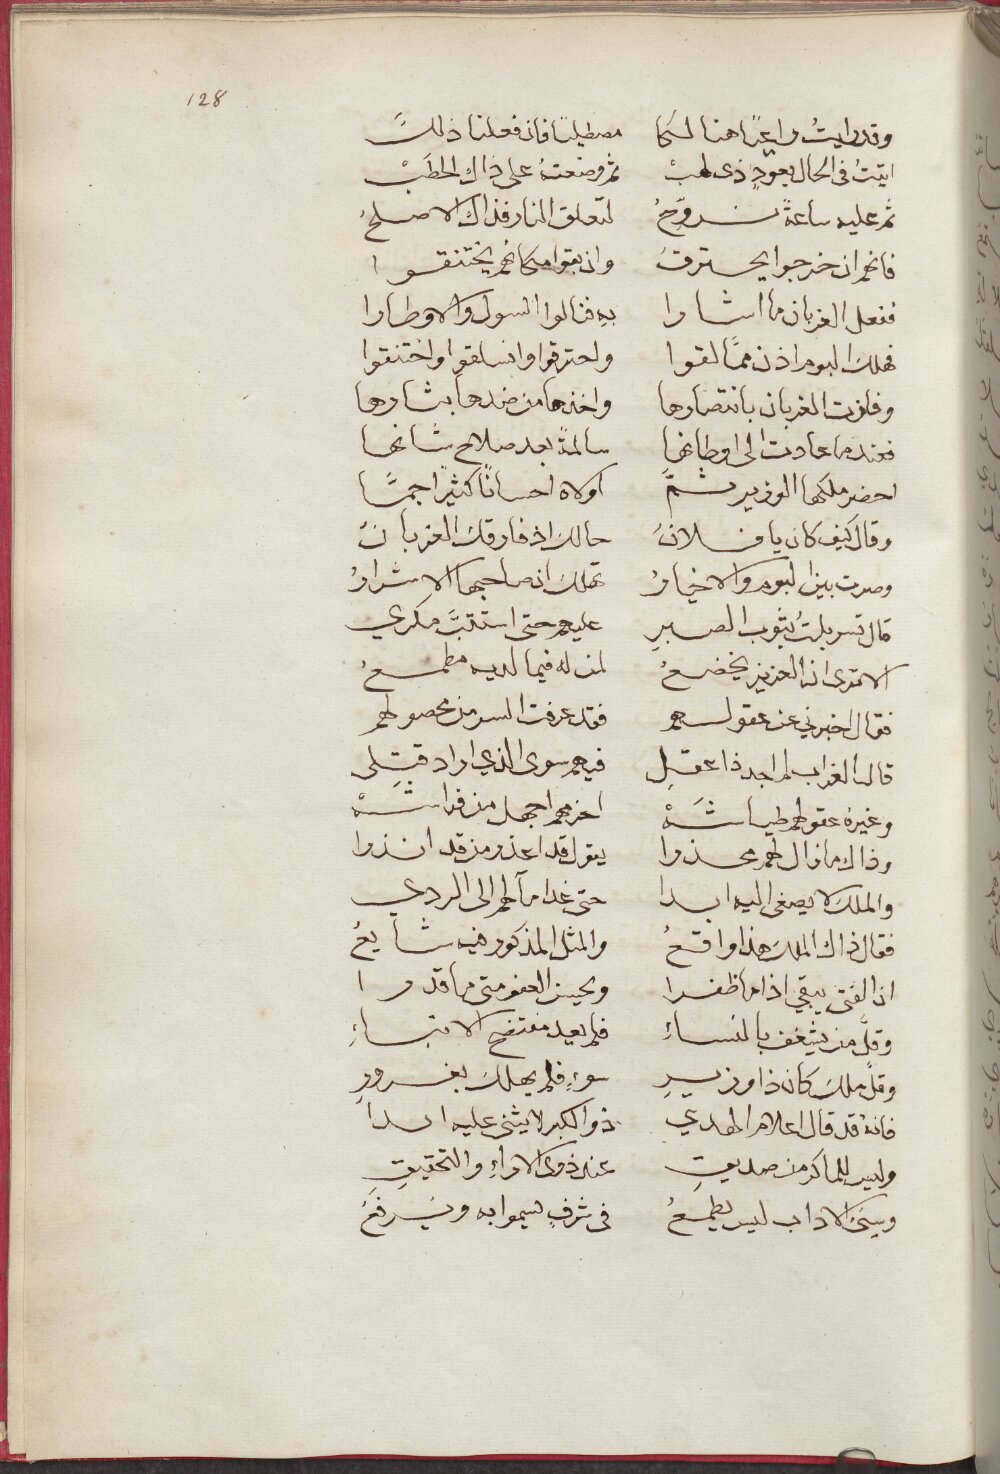 128
وقد رايتُ راعيًا هنا لكا مصطليًا فان فعلنا ذلكَ
اتيتُ فى الحال بعودٍ ذى لهبْ ثم وضعتهُ على ذاك الحطَبْ
ثم عليه ساعةً نروّحُ لتعلق النار فذاك الاصلحُ
فانهم ان خرجوا يحترقَ وان بقوا مكانهُم يختنقوا
ففعل الغربان ما اشارا به فنالوا السول والاوطارا
فهلك البوم اذن ممّا لقوا واحترقوا وانسلقوا واختنقوا
وفازت الغربان بانتصارها واخذها من ضدها بثارها
فعند ما عادت الى اوطانها سالمةً بعد صلاح شانها
احضر ملكها الوزير ثمَّ اولاه احسانًا كثيرًا جمّا
وقال كيف كان يا فلانُ حالك اذ فارقك الغربانُ
وصرت بين البوم والاخيارُ تهلك ان صاحبها الاشرارُ
قال تسربلتُ بثوب الصبرِ عليهم حتى استتبَّ مكري
الا ترى ان العزيز يخضعُ لمن له فيما لديه مطمعُ
فقال اخبرني عن عقولهم فقد عرفت السر من محصولهم
قال الغراب لم اجد ذا عقلِ فيهم سوى الذي اراد قتلِى
وغيرهُ عقولهم طياشَهْ احزمهم اجهل من فراشَهْ
وذاك ما زال لهم محذرا يقول قد اعذر من قد انذرا
والملك لا يصغى اليه ابدا حتى غدا مآلهم الى الردي
فقال ذاك الملك هذا واقعُ والمثل المذكور فيه شايعُ
ان الفتى يبقي اذا ما ظفرا ويحسن العفو متى ما قدرا
وقلَّ من يشغف بالنساءِ فلم يعد مفتضح الانباءِ
وقلّ ملك كان ذا وزيرِ سوءٍ فلم يهلك بغرورِ
فانهُ قد قال اعلام الهدي ذو الكبر لا يثنى عليه ابدا
وليس للماكر من صديقِ عند ذوى الاراءِ والتحقيقِ
وسيّئ الاداب ليس يطمعُ فى شرفٍ يسموا به ويرفعُ